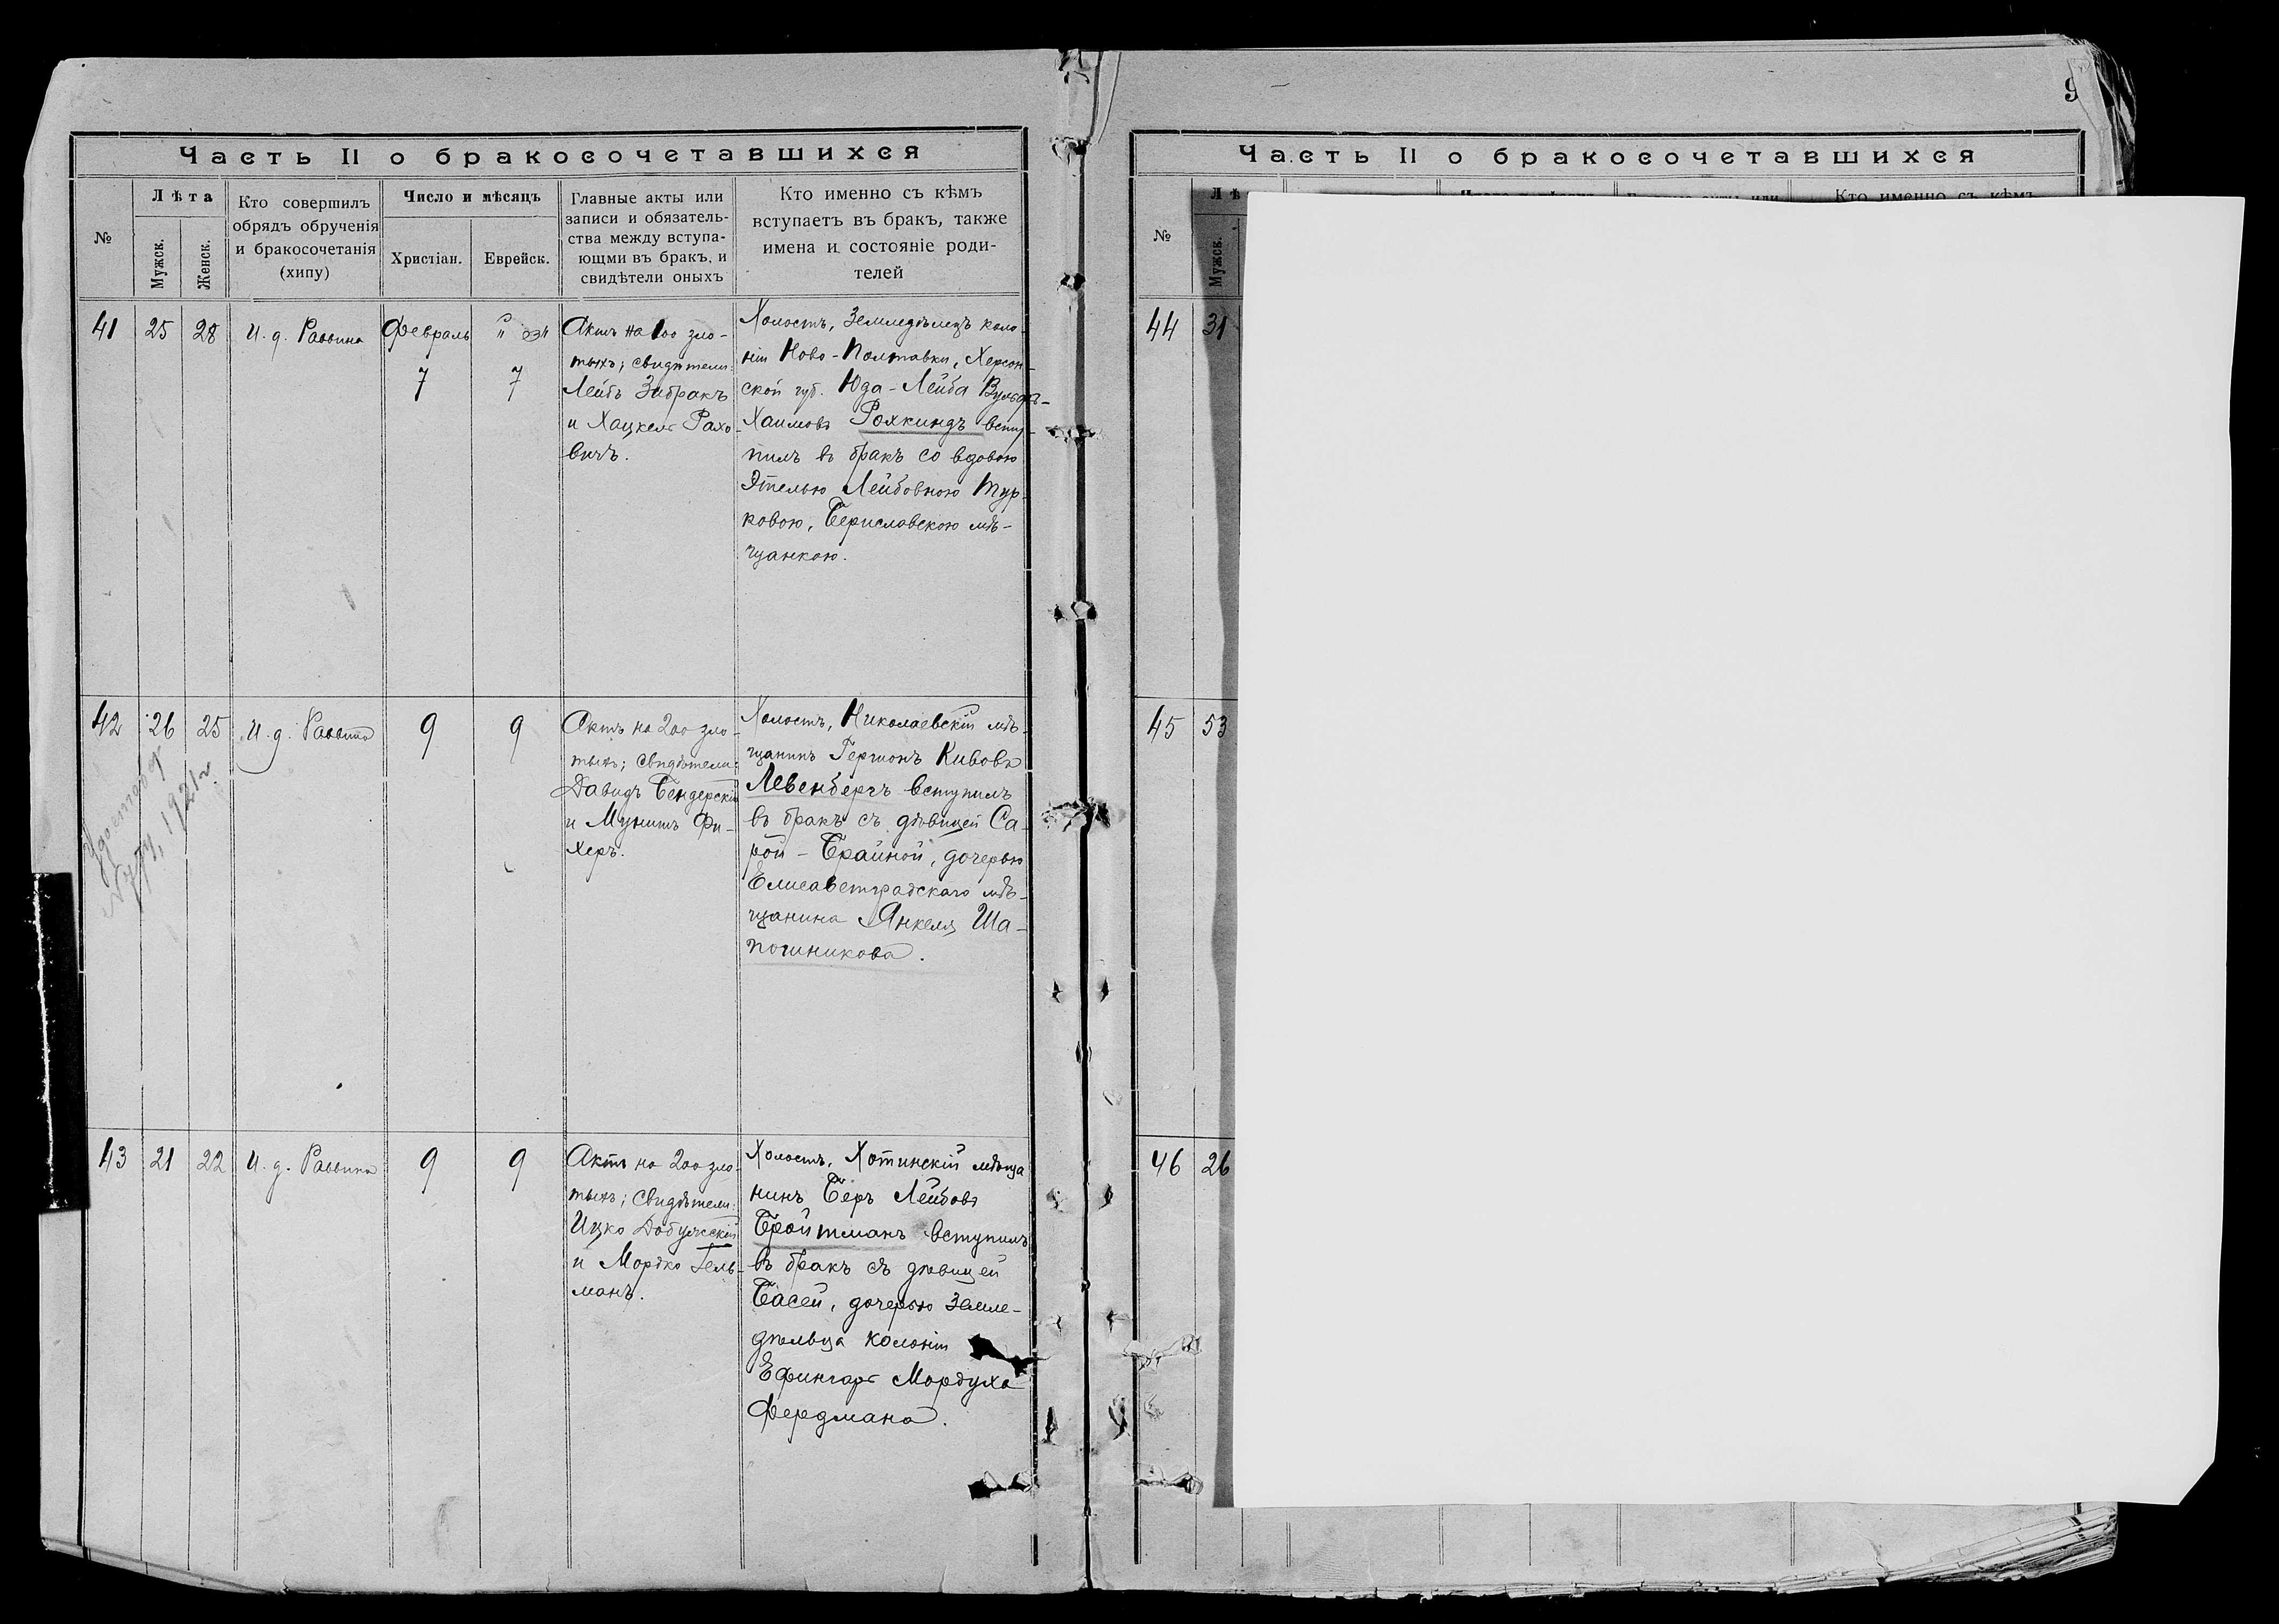 9
Часть II о бракосочетавшихся
№
Лѣта
Мужск.
Женск.
Кто совершилъ
обрядъ обрученія
и бракосочетанія
(хипу)
Число и мѣсяцъ
Христіан.
Еврейск.
Главные акты или
записи и обязатель-
ства между вступа-
ющми въ бракъ, и
свидѣтели оныхъ
Кто именно съ кѣмъ
вступаетъ въ бракъ, также
имена и состояніе роди-
телей
41
25
28
И. д. Раввина
Февраль
7
7
Актъ на 100 зло-
тыхъ; свидѣтели:
Лейбъ Забракъ
и Хацкель Рахо-
вичъ.
Холостъ, Земледѣлецъ коло-
ніи Ново-Полтавки, Херсон-
ской губ. Юда-Лейба Вульфъ-
Хаимовъ Рохкиндъ всту-
пилъ въ бракъ со вдовою
Этелью Лейбовною Тур-
ковою, Бериславскою мѣ-
щанкою.
42
26
25
И. д. Раввина
9
9
Актъ на 200 зло-
тыхъ; свидѣтели:
Давидъ Бендерскій
и Мунишъ Фи-
херъ.
Холостъ, Николаевскій мѣ-
щанинъ Гершонъ Кивовъ
Левенбергъ вступилъ
въ бракъ съ дѣвицей Са-
рой-Брайной, дочерью
Елисаветградскаго мѣ-
щанина Янкеля Ша-
пошникова.
1921 г.
43
21
22
И. д. Раввина
9
9
Актъ на 200 зло-
тыхъ; свидѣтели:
Ицко
и Мордко Гель-
манъ.
Холостъ, Хотинскій мѣща
нинъ Беръ Лейбовъ
Бройтманъ вступилъ
въ бракъ съ дѣвицей
Басей, дочерью Земле-
дѣльца колоніи
Ефингаръ Мордуха
Фердмана.
Часть II о бракосочетавшихся
№
Лѣ
Мужск.
Кто именно съ кѣмъ
44
31
45
53
46
26